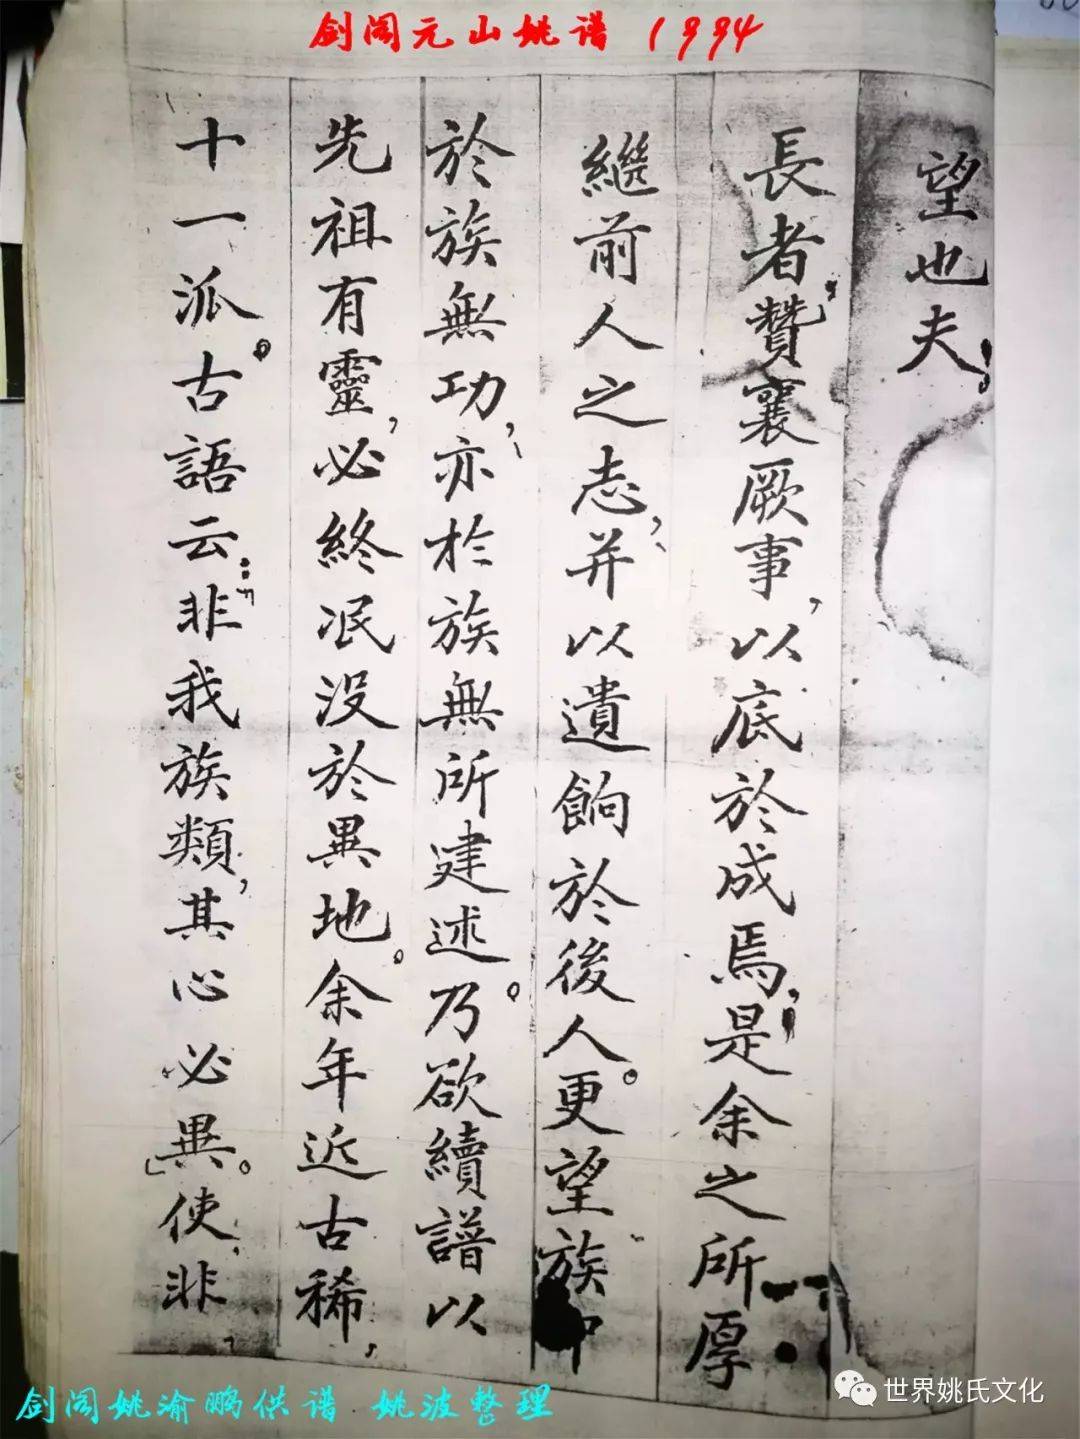 剑阁元山姚谱 1994
十一派。古語云:“非我族類,其心必異。”使,非,
先祖有靈,必終泯没於異地。余年近古稀,
於族無功,亦於族無所建述。乃欲續譜以
繼前人之志,并以遺餉於後人。更望族中
長者贊襄厥事,以底於成焉,是余之所厚
望也夫!
剑阁姚渝鹏供谱 姚波整理
世界姚氏文化